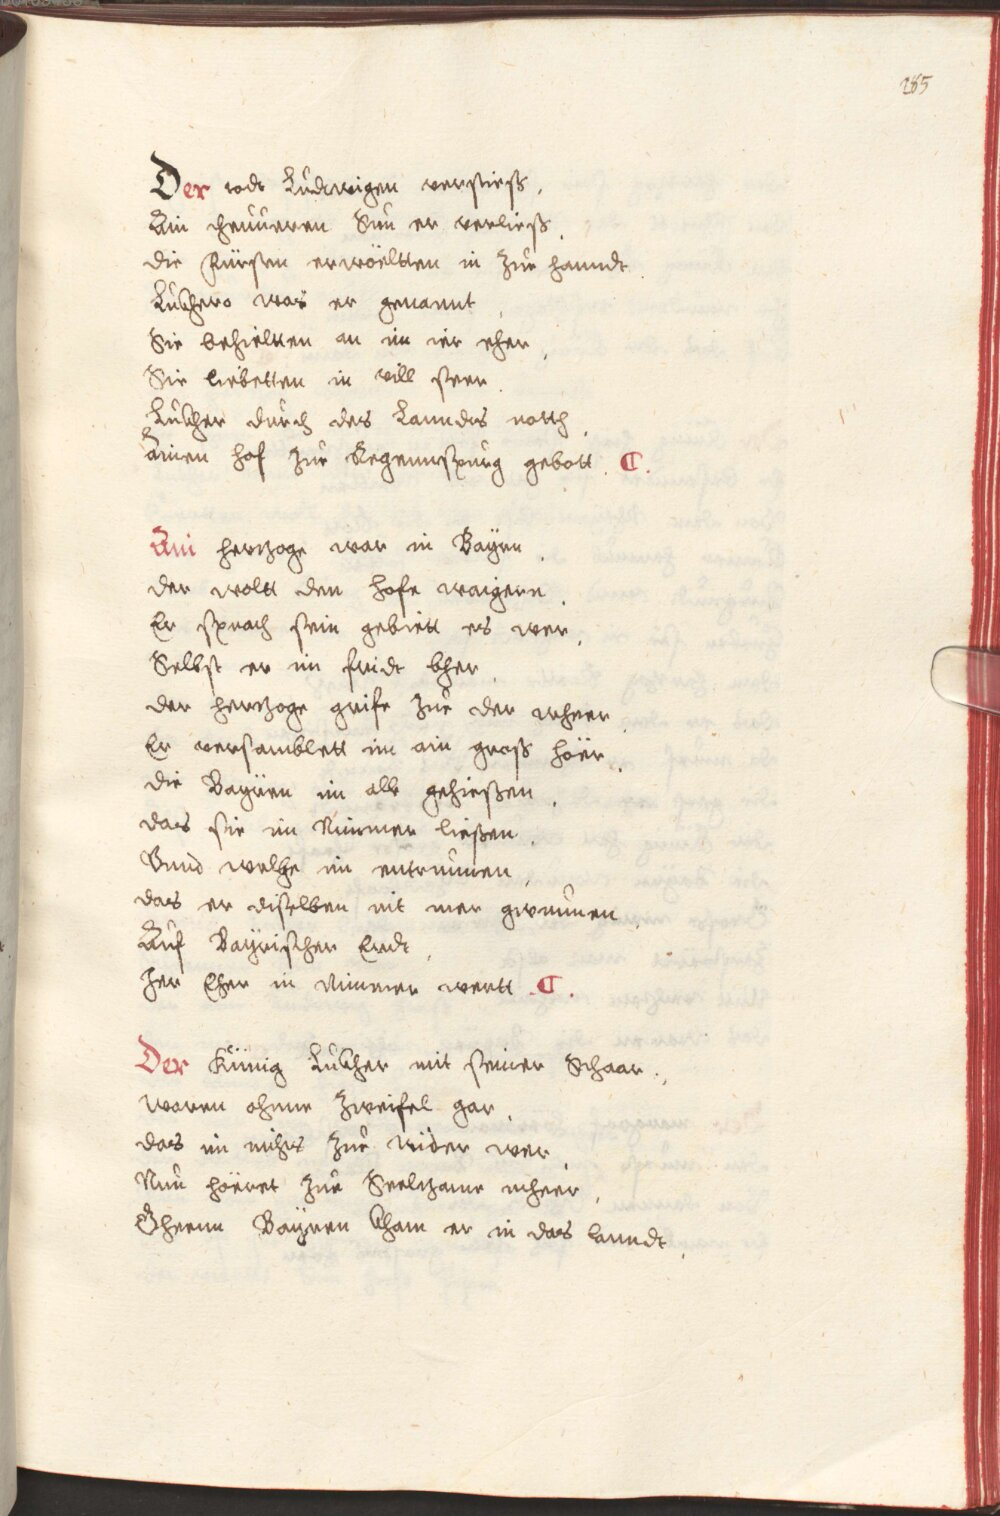 185
Der todt Ludwigen verstiess,
Ain theuueren Sun er verliess,
die Fürsten erwöeltten in zue hanndt.
Luther was er genannt,
Sie behieltten an im ier eher,
Sie liebetten in vill seer.
Luther durch des Lanndes notth,
Ainen hof zue Regennspurg gebott. C.
Ain hertzoge war in Bayrn,
der wollt den hofe waigern,
Er sprach sein gebiett es wer,
Selbst er im fridt bher,
der hertzoge grife zue der wheer,
Er versamblett im ain gross höer,
die Bayren im all gehiessen,
das sie im Nimmer liessen,
Vnnd welche im entrunnen,
das er diselben nit mer gwunnen
Auf Bayrischer Erdt,
Jer Eher in Nimmer wertt. C.
Der Künig Luther mit seiner Schaar,
waren ohnne zweifel gar,
das im nichts zue wider wer,
Nun höeret zue Seeltzame mheer,
Ghenn Bayren kham er in das lanndt,